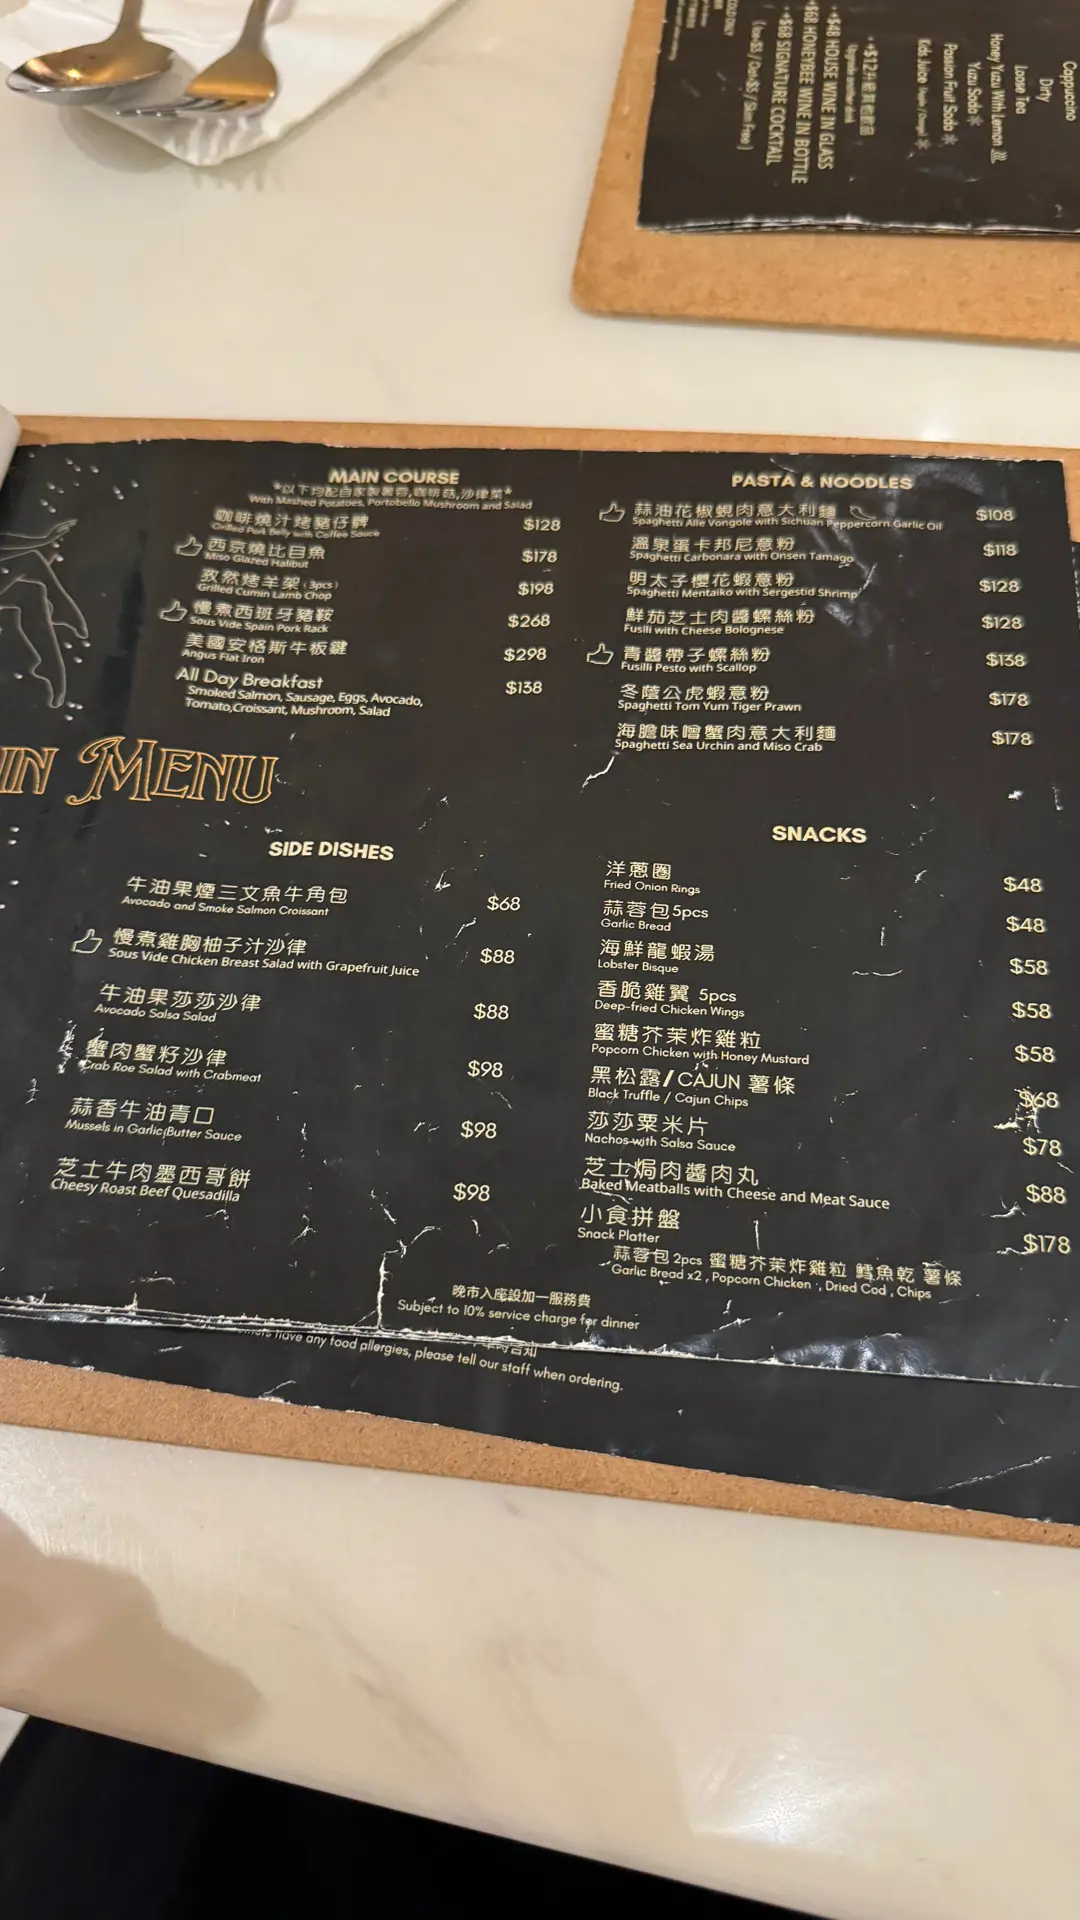 Cappuccino
Dirty
Loose Tea
Honey Yuzu With Lemon
Yuzu Soda
Passion Fruit Soda
Kids Juice
+$12
Upgrade another drink
+$48 HOUSE WINE IN GLASS
+$168 HONEYBEE WINE IN BOTTLE
+$68 SIGNATURE COCKTAIL
MAIN COURSE
*以下均配自家製薯蓉,咖啡菇,沙律菜*
With Mashed Potatoes, Portobello Mushroom and Salad
咖啡燒汁烤豬仔髀 $128
Grilled Pork Belly with Coffee Sauce
西京燒比目魚 $178
Miso Glazed Halibut
孜然烤羊架 (3pcs) $198
Grilled Cumin Lamb Chop
慢煮西班牙豬鞍 $268
Sous Vide Spain Pork Rack
美國安格斯牛板鍵 $298
Angus Flat Iron
All Day Breakfast $138
Smoked Salmon, Sausage, Eggs, Avocado,
Tomato,Croissant, Mushroom, Salad
PASTA & NOODLES
蒜油花椒蜆肉意大利麵 $108
Spaghetti Alle Vongole with Sichuan Peppercorn Garlic Oil
溫泉蛋卡邦尼意粉 $118
Spaghetti Carbonara with Onsen Tamago
明太子櫻花蝦意粉 $128
Spaghetti Mentaiko with Sergestid Shrimp
鮮茄芝士肉醬螺絲粉 $128
Fusili with Cheese Bolognese
青醬帶子螺絲粉 $138
Fusilli Pesto with Scallop
冬蔭公虎蝦意粉 $178
Spaghetti Tom Yum Tiger Prawn
海膽味噌蟹肉意大利麵 $178
Spaghetti Sea Urchin and Miso Crab
IN MENU
SIDE DISHES
牛油果煙三文魚牛角包 $68
Avocado and Smoke Salmon Croissant
慢煮雞胸柚子汁沙律 $88
Sous Vide Chicken Breast Salad with Grapefruit Juice
牛油果莎莎沙律 $88
Avocado Salsa Salad
蟹肉蟹籽沙律 $98
Crab Roe Salad with Crabmeat
蒜香牛油青口 $98
Mussels in Garlic Butter Sauce
芝士牛肉墨西哥餅 $98
Cheesy Roast Beef Quesadilla
SNACKS
洋蔥圈 $48
Fried Onion Rings
蒜蓉包5pcs $48
Garlic Bread
海鮮龍蝦湯 $58
Lobster Bisque
香脆雞翼 5pcs $58
Deep-fried Chicken Wings
蜜糖芥茉炸雞粒 $58
Popcorn Chicken with Honey Mustard
黑松露/CAJUN 薯條 $68
Black Truffle / Cajun Chips
莎莎粟米片 $78
Nachos with Salsa Sauce
芝士焗肉醬肉丸 $88
Baked Meatballs with Cheese and Meat Sauce
小食拼盤 $178
Snack Platter
蒜蓉包 2pcs 蜜糖芥茉炸雞粒 鱈魚乾 薯條
Garlic Bread x2 , Popcorn Chicken , Dried Cod , Chips
晚市入座設加一服務費
Subject to 10% service charge for dinner
have any food allergies, please tell our staff when ordering.